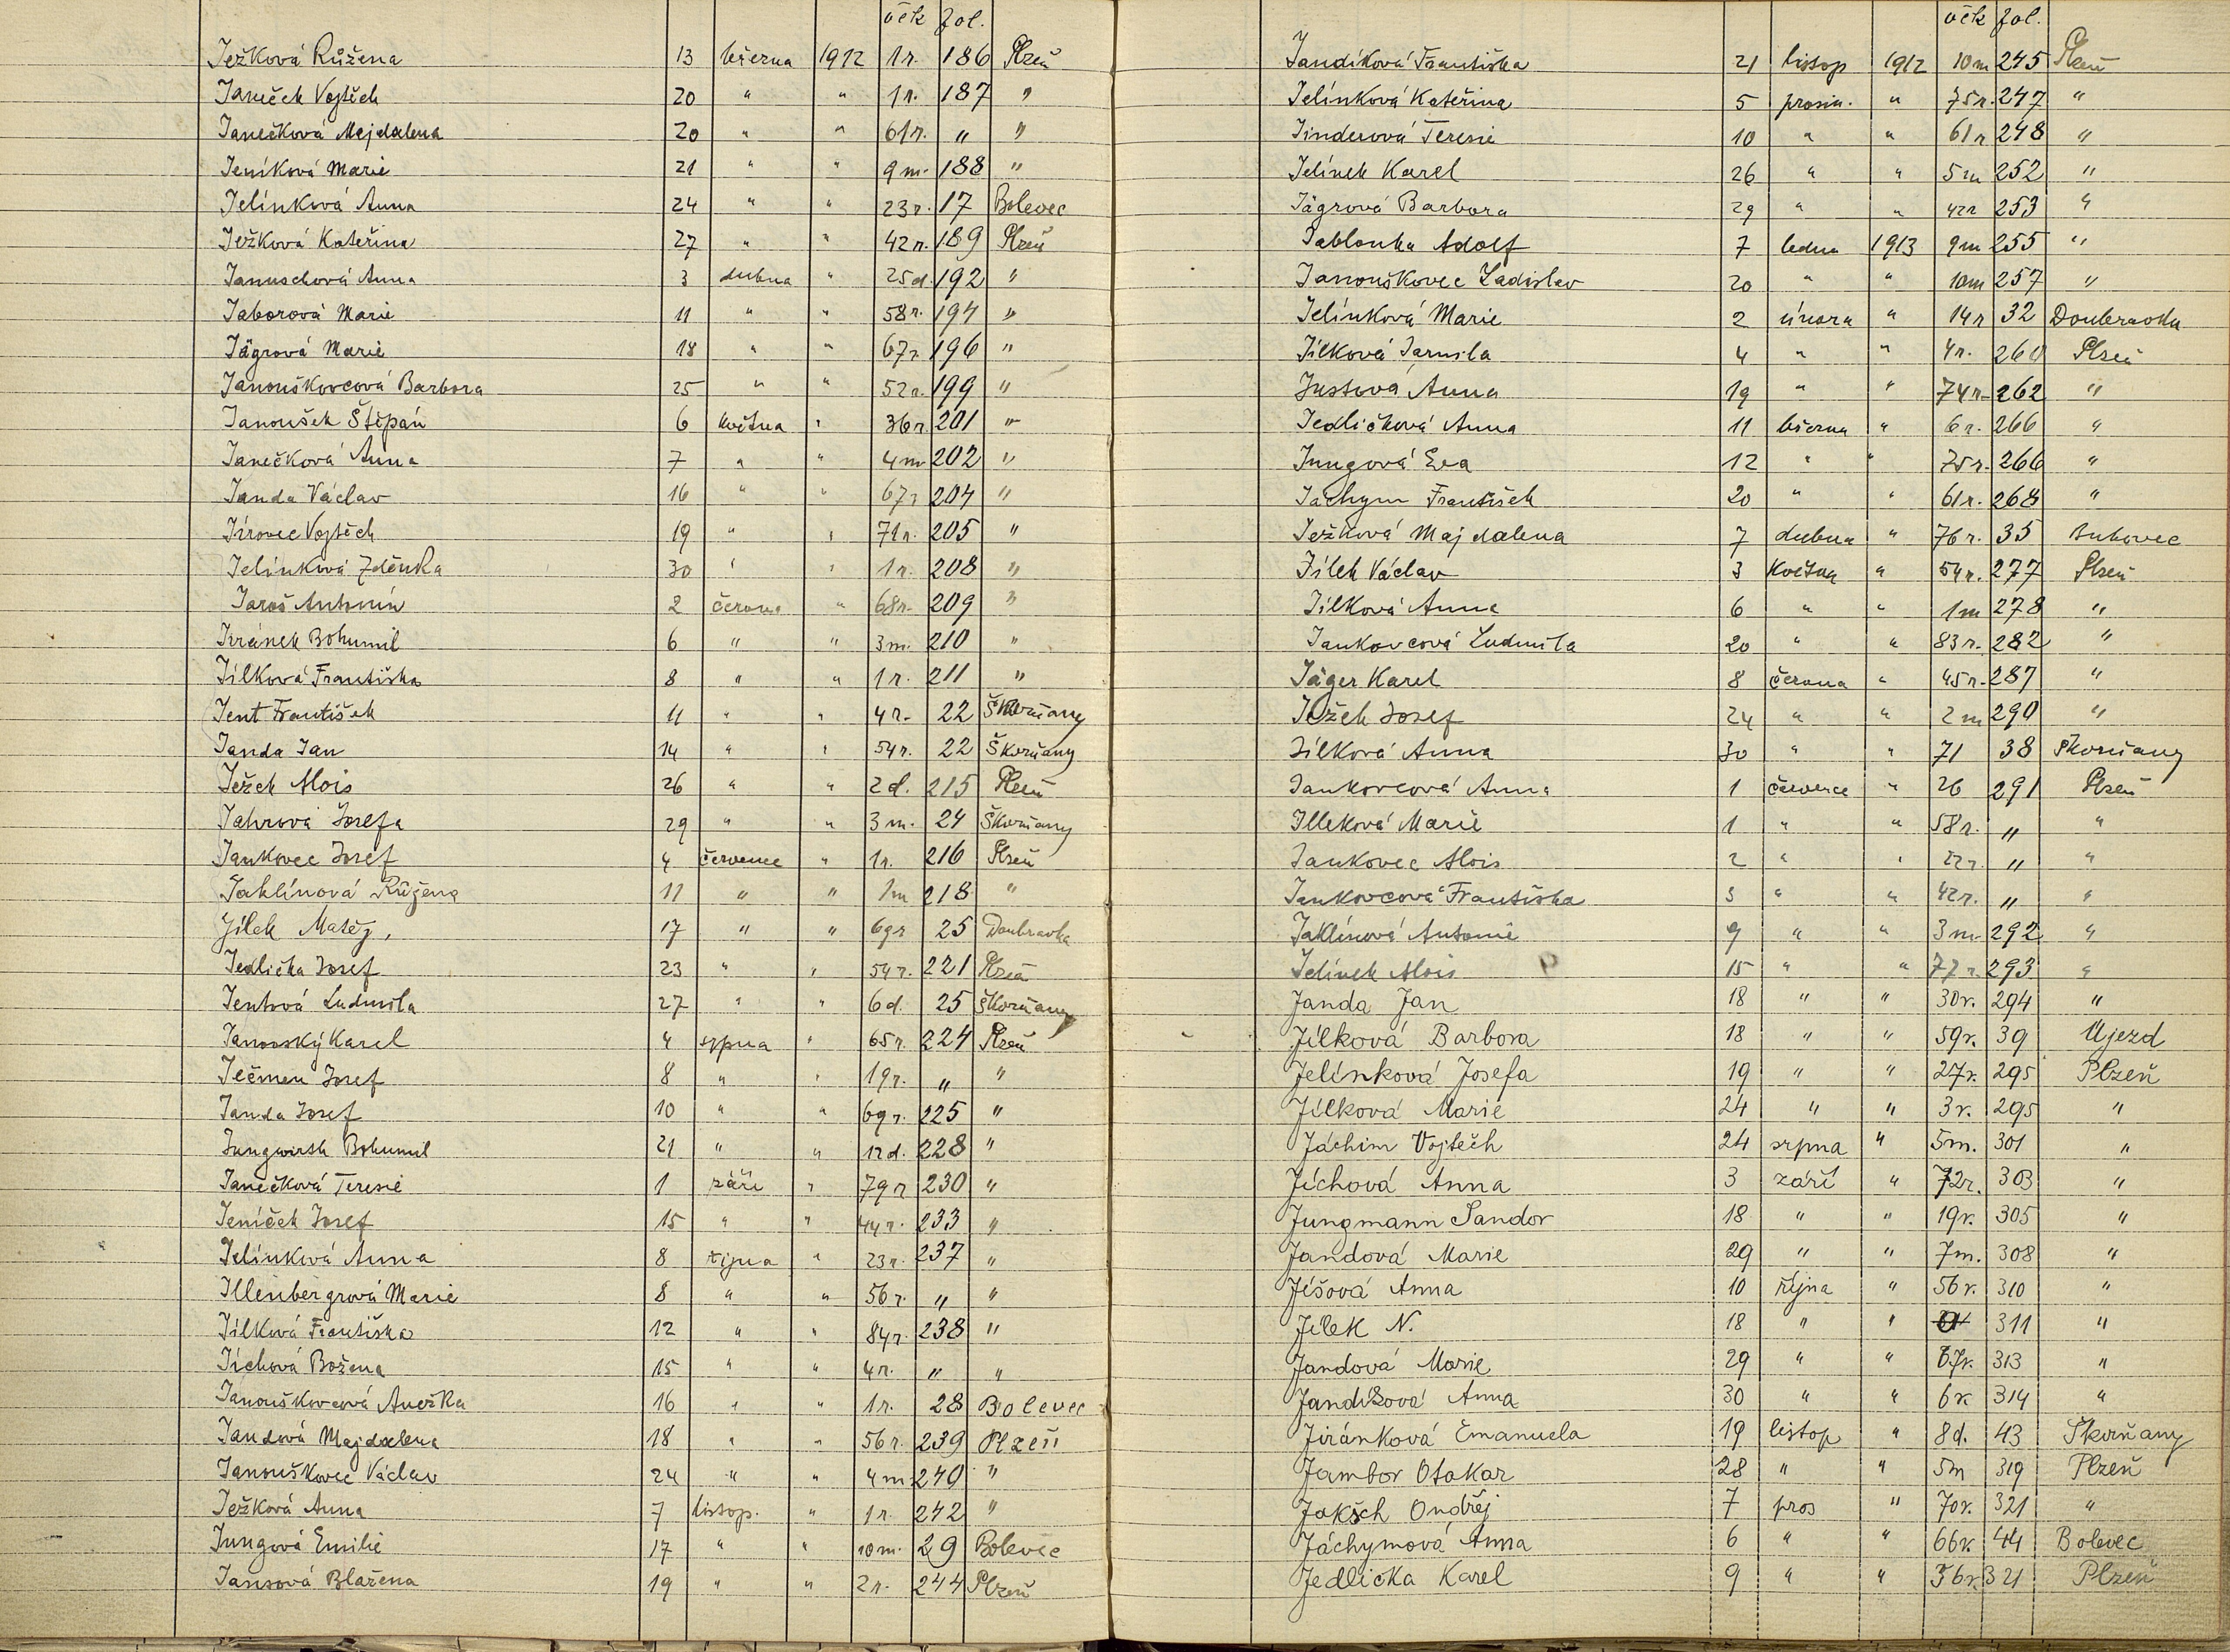 věk fol.
Ježková Růžena 13 března 1912 1 r. 186 Plzeň
Janeček Vojtěch 20 " " 1 r. 187 "
Janečková Majdalena 20 " " 61 r. " "
Jeníková Marie 21 " " 9 m. 188 "
Jelínková Anna 24 " " 23 r. 17 Bolevec
Ježková Kateřina 27 " " 42 r. 189 Plzeň
Januschová Anna 3 dubna " 25 d. 192 "
Jaborová Marie 11 " " 58 r. 194 "
Jägrová Marie 18 " " 67 r. 196 "
Janouškovcová Barbora 25 " " 52 r. 199 "
Janoušek Štěpán 6 května " 36 r. 201 "
Janečková Anna 7 " " 4 m 202 "
Janda Václav 16 " " 67 r 204 "
Jírovec Vojtěch 19 " " 71 r. 205 "
Jelínková Zděnka 30 " " 1 r. 208 "
Jaroš Antonín 2 června " 68 r. 209 "
Jiránek Bohumil 6 " " 3 m. 210 "
Jílková Františka 8 " " 1 r. 211 "
Jent František 11 " " 4 r. 22 Škvrňany
Janda Jan 14 " " 54 r. 22 Škvrňany
Ježek Alois 26 " " 2 d. 215 Plzeň
Jahrová Josefa 29 " " 3 m. 24 Škvrňany
Jankovec Josef 4 července " 1 r. 216 Plzeň
Jaklínová Růžena 11 " " 1 m 218 "
Jílek Matěj, 17 " " 69 r 25 Doubravka
Jedlička Josef 23 " " 54 r. 221 Plzeň
Jentová Ludmila 27 " " 6 d. 25 Škvrňany
Janovský Karel 4 srpna " 65 r. 224 Plzeň
Ječmen Josef 8 " " 19 r. " "
Janda Josef 10 " " 69 r. 225 "
Jungwirth Bohumil 21 " " 12 d. 228 "
Janečková Teresie 1 září " 79 r 230 "
Jeníček Josef 15 " " 44 r. 233 "
Jelínková Anna 8 října " 23 r. 237 "
Illenbergrová Marie 8 " " 56 r. " "
Jílková Františka 12 " " 84 r. 238 "
Jíchová Božena 15 " " 4 r. " "
Janouškovcová Anežka 16 " " 1 r. 28 Bolevec
Jandová Majdalena 18 " " 56 r. 239 Plzeň
Janouškovec Václav 24 " " 4 m 240 "
Ježková Anna 7 listop. " 1 r. 242 "
Jungová Emilie 17 " " 10 m. 29 Bolevec
Jansová Blažena 19 " " 2 r. 244 Plzeň
věk fol.
Jandíková Františka 21 listop 1912 10 m 245 Plzeň
Jelínková Kateřina 5 prosin. " 75 r. 247 "
Jinderová Teresie 10 " " 61 r 248 "
Jelínek Karel 26 " " 5 m 252 "
Jägrová Barbora 29 " " 42 r 253 "
Jablonka Adolf 7 ledna 1913 9 m 255 "
Janouškovec Ladislav 20 " " 10 m 257 "
Jelínková Marie 2 února " 14 r 32 Doubravka
Jílková Jarmila 4 " " 4 r. 260 Plzeň
Justová Anna 19 " " 74 r. 262 "
Jedličková Anna 11 března " 6 r. 266 "
Jungová Eva 12 " " 75 r. 266 "
Jáchym František 20 " " 61 r. 268 "
Ježková Majdalena 7 dubna " 76 r. 35 Bukovec
Jílek Václav 3 Května " 54 r. 277 Plzeň
Jílková Anna 6 " " 1 m 278 "
Jankovcová Ludmila 20 " " 83 r. 282 "
Jäger Karel 8 června " 45 r. 287 "
Ježek Josef 24 " " 2 m 290 "
Jílková Anna 30 " " 71 38 Škvrňany
Jankovcová Anna 1 července " 26 291 Plzeň
Illeková Marie 1 " " 58 r. " "
Jankovec Alois 2 " " 22 r. " "
Jankovcová Františka 3 " " 42 r. " "
Jaklínová Antonie 9 " " 3 m 292 "
Jelínek Alois 15 " " 77 r. 293 "
Janda Jan 18 " " 30 r. 294 "
Jílková Barbora 18 " " 59 r. 39 Újezd
Jelínková Josefa 19 " " 27 r. 295 Plzeň
Jílková Marie 24 " " 3 r. 295 "
Jáchim Vojtěch 24 srpna " 5 m. 301 "
Jíchová Anna 3 září " 72 r. 303 "
Jungmann Sandor 18 " " 19 r. 305 "
Jandová Marie 29 " " 7 m. 308 "
Jíšová Anna 10 října " 56 r. 310 "
Jílek N. 18 " " 311 "
Jandová Marie 29 " " 67 r. 313 "
Jandišová Anna 30 " " 6 r 314 "
Jiránková Emanuela 19 listop " 8 d. 43 Škvrňany
Jambor Otakar 28 " " 5 m 319 Plzeň
Jaksch Ondřej 7 pros " 70 r. 321 "
Jáchymová Anna 6 " " 66 r. 44 Bolevec
Jedlička Karel 9 " " 36 r. 321 Plzeň